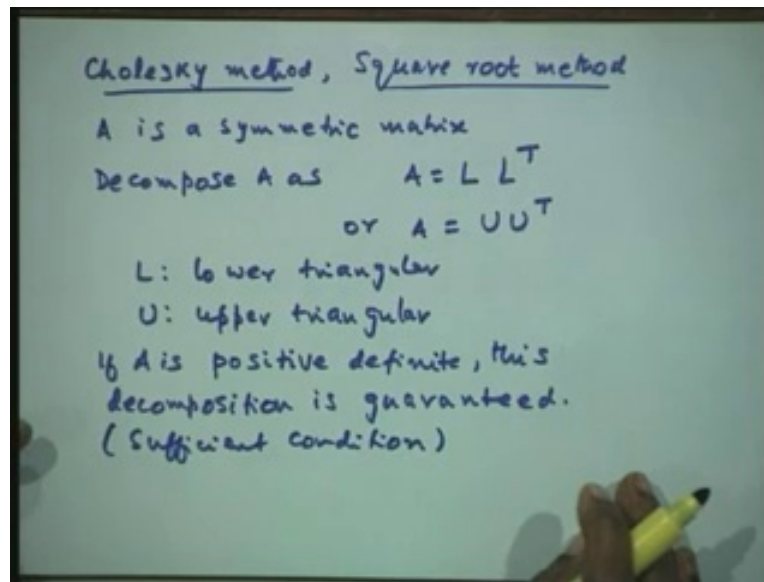 Cholesky method, Square root method
A is a symmetric matrix
Decompose A as A = L L^T
or A = U U^T
L: lower triangular
U: upper triangular
If A is positive definite, this
decomposition is guaranteed.
(Sufficient condition)